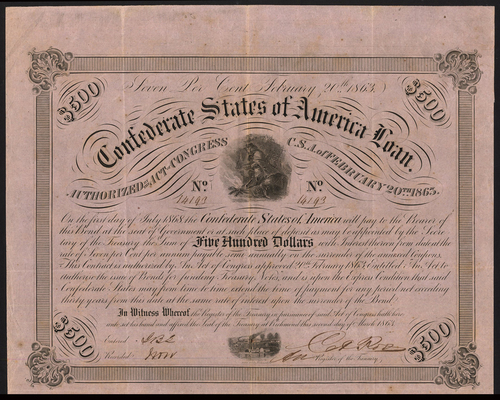 Seven Per Cent February, 20th 1863.
$500 $500
Confederate States of America Loan.
AUTHORIZED BY ACT OF CONGRESS C.S.A. of FEBRUARY 20TH 1863.
No No
14143 14143
On the first day of July 1868 the Confederate States of America will pay to the Bearer of
this Bond at the seat of Government or at such place of deposit as may be appointed by the Secre-
tary of the Treasury the Sum of Five Hundred Dollars with Interest thereon from date at the
rate of Seven per Cent per annum payable semi annually on the surrender of the annexed Coupons.
This Contract is authorized by An Act of Congress approved February 1863 Entitled "An Act to
authorize the issue of Bonds for funding Treasury Notes, and is upon the Express Condition that said
Confederate States may from time to time extend the time of payment for any period not exceeding
thirty years from this date at the same rate of interest upon the surrender of the Bond.
In Witness Whereof, the Register of the Treasury in pursuance of said Act of Congress hath here-
unto set his hand and affixed the Seal of the Treasury at Richmond this second day of March 1863.
Entered
Recorded
Register of the Treasury
$500 $500